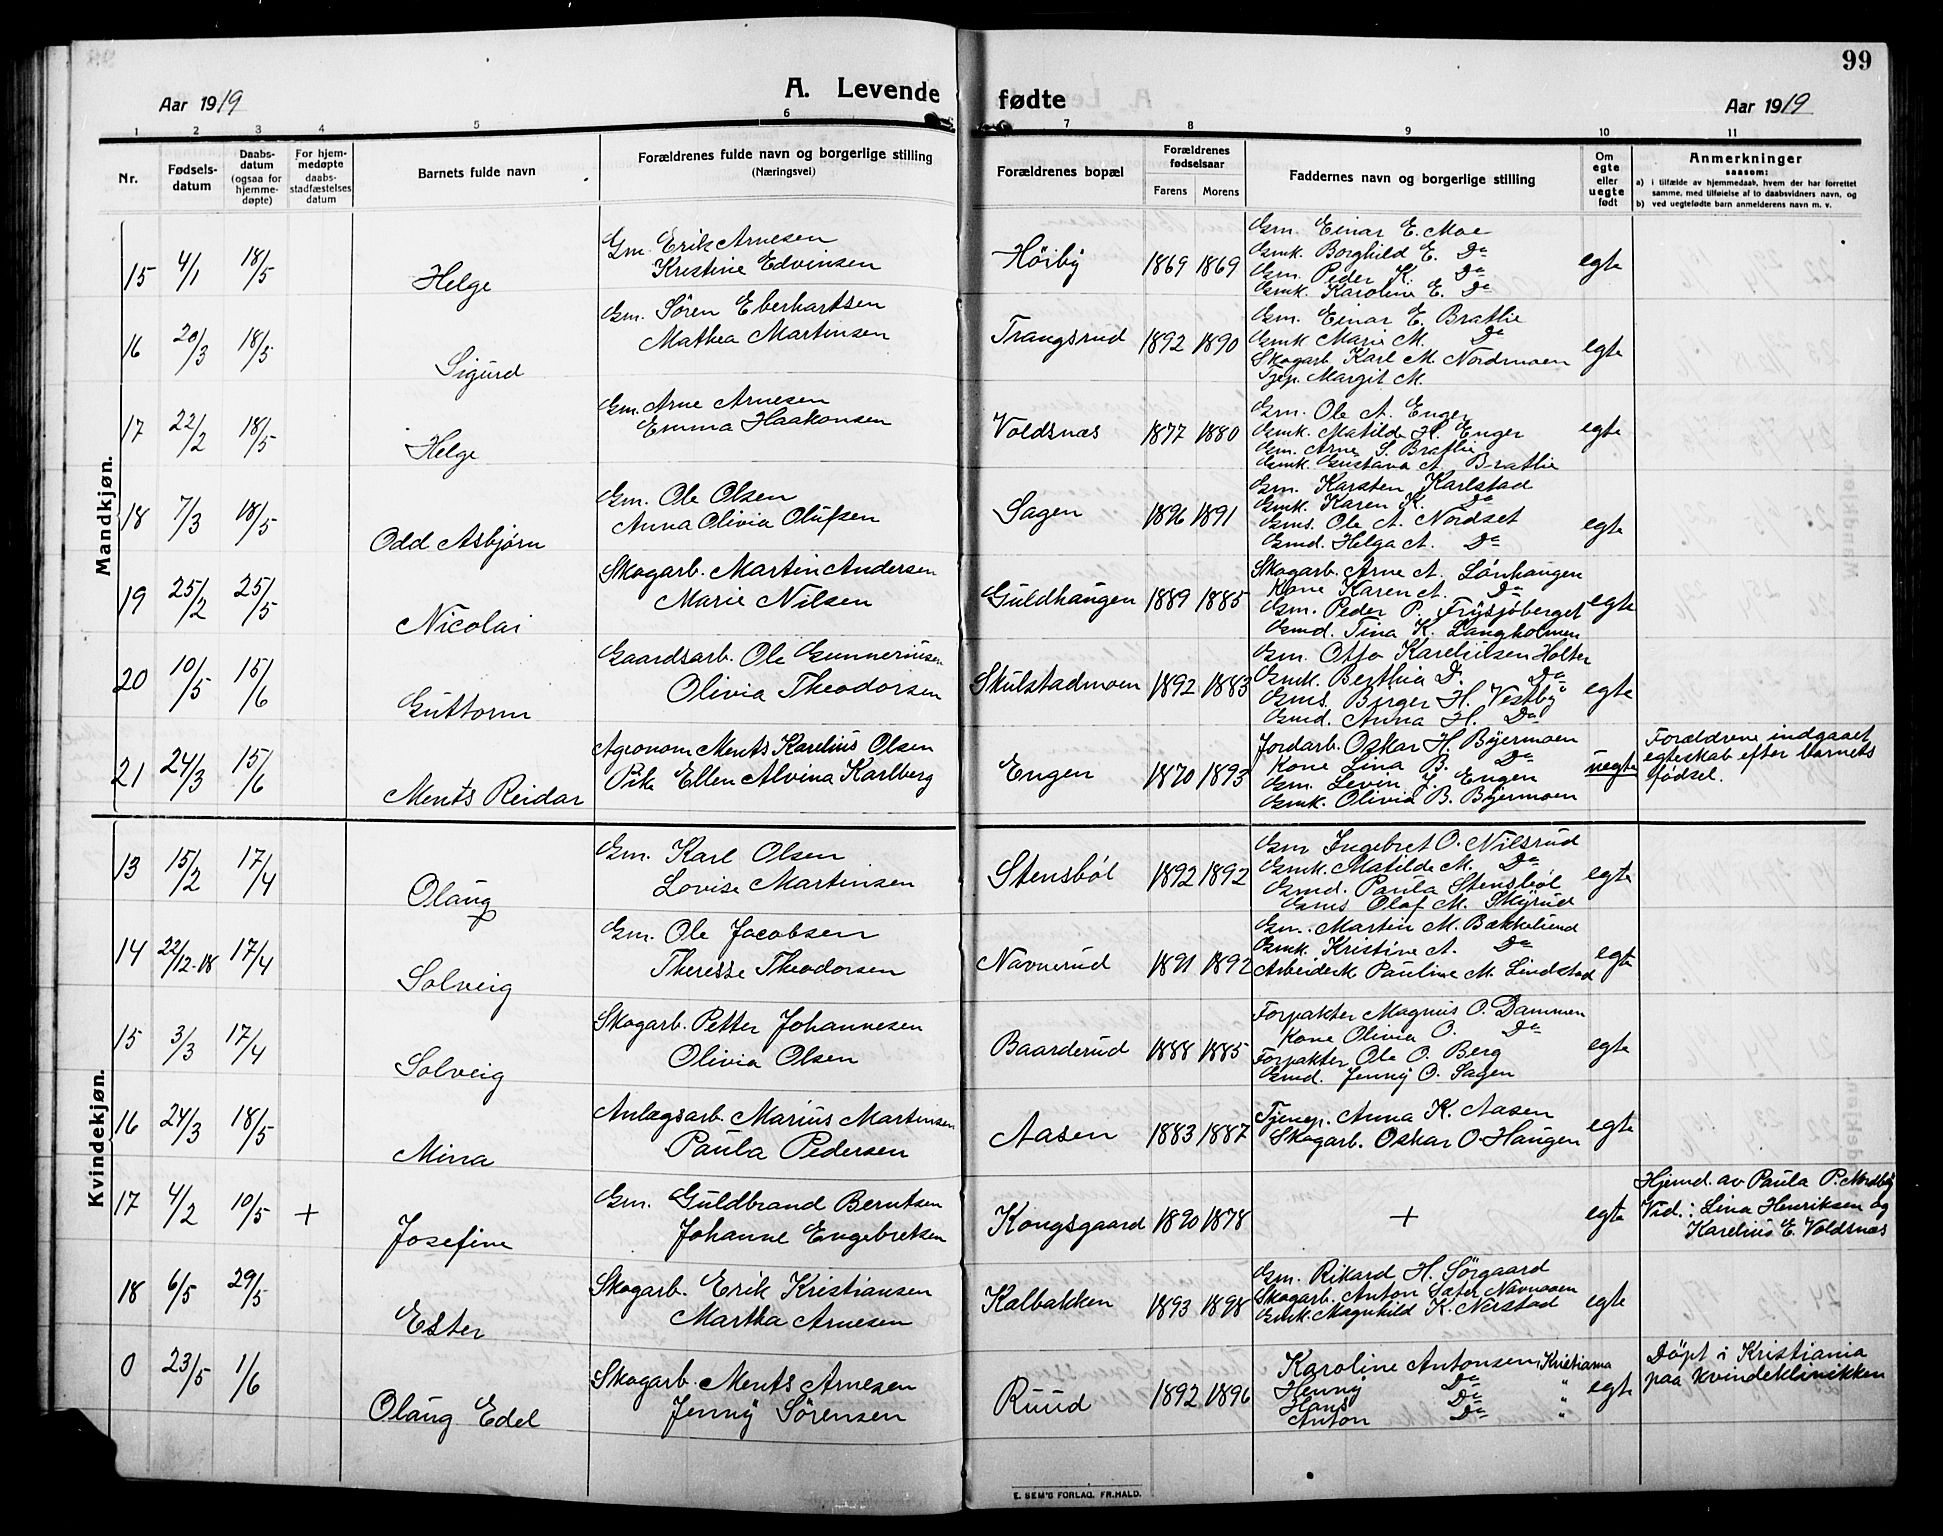 99
A. Levende fødte
Aar 1919
Aar 1919
1 2 3 4 5 6 7 8 9 10 11
Nr.
Fødsels-datum
Daabs-datum (ogsaa for hjemme-døpte)
For hjem-medøpte daabs-stadfæstelses datum
Barnets fulde navn
Forældrenes fulde navn og borgerlige stilling (Næringsvei)
Forældrenes bopæl
Forældrenes fødselsaar
Farens Morens
Faddernes navn og borgerlige stilling
Om egte eller uegte født
Anmerkninger saasom:
a) i tilfælde av hjemmedaab, hvem der har forrettet samme, med tilføielse af to daabsvidners navn, og
b) ved uegtefødte barn anmelderens navn m. v.
Mandkjøn.
15 4/1 18/5 Helge
Gm. Erik Arnesen
Kristine Edvinsen
Höiby 1869 1869
Gm. Einar E. Moe
Gmk. Borghild E. Do
Gm. Peder K. Do
Gmk. Karoline E. Do
egte
16 20/3 18/5 Sigurd
Gm. Sören Eberhartsen
Mathea Martinsen
Trangsrud 1892 1890
Gm. Einar E. Bratlie
Gmk. Marie M. Do
Skogarb. Karl M. Nordmoen
Tjep. Margit M.
egte
17 22/2 18/5 Helge
Gm. Arne Arnesen
Emma Haakonsen
Voldsnæs 1877 1880
Gm. Ole A. Enger
Gmk. Matilde H. Enger
Gm. Arne S. Bratlie
Gmk. Gustava A. Bratlie
egte
18 7/3 18/5 Odd Asbjørn
Gm. Ole Olsen
Anna Olivia Olufsen
Sagen 1896 1891
Gm. Karsten Karlstad
Gmk. Karen K. Do
Gms. Ole A. Nordset
Gmd. Helga A. Do
egte
19 25/2 25/5 Nicolai
Skogarb. Martin Andersen
Marie Nilsen
Guldhaugen 1889 1885
Skogarb. Arne A. Lönhaugen
Kone Karen A. Do
Gm. Peder P. Frysjöberget
Gmd. Tina K. Langholmen
egte
20 10/5 15/6 Guttorm
Gaardsarb. Ole Gunneriusen
Olivia Theodorsen
Skulstadmoen 1892 1883
Gm. Otto Kareliusen Holter
Gmk. Berthia D. Do
Gms. Birger H. Vestby
Gmd. Anna H. Do
egte
21 24/3 15/6 Ments Reidar
Agronom Ments Karelius Olsen
Pike Ellen Alvina Karlberg
Engen 1870 1893
Jordarb. Oskar H. Byermoen
Kone Lina B. Do
Gm. Levin J. Engen
Gmk. Olivia B. Byermoen
uegte
Forældrene indgaaet
egteskab efter barnets
fødsel.
Kvindekjøn.
13 15/2 17/4 Olaug
Gm. Karl Olsen
Lovise Martinsen
Stensböl 1892 1892
Gm Ingebret O. Nilsrud
Gmk. Matilde M. Do
Gmd. Paula Stensböl
Gms Olaf M. Skyrud
egte
14 22/12-18 17/4 Solveig
Gm. Ole Jacobsen
Theresse Theodorsen
Navnerud 1891 1892
Gm. Martin M. Bækkelund
Gmk. Kristine A. Do
Arbeiderk Pauline M. Lindstad
egte
15 3/3 17/4 Solveig
Skogarb. Petter Johannesen
Olivia Olsen
Baarderud 1888 1885
Forpakter Magnus O. Dammen
Kone Olivia O. Do
Forpakter Ole O. Berg
Gmd. Jenny O. Sagen
egte
16 24/3 18/5 Mina
Anlægsarb. Marius Martinsen
Paula Pedersen
Aasen 1883 1887
Tjenep. Anna K. Aasen
Skogarb. Oskar O. Haugen
egte
17 4/2 10/5 + Josefine
Gm. Guldbrand Berntsen
Johanne Engebretsen
Kongsgaard 1890 1878
+
egte
Hjemd. av Paula P. Nordby
Vid.: Lina Henriksen og
Karelius E. Voldsnæs
18 6/5 29/5 Ester
Skogarb. Erik Kristiansen
Martha Arnesen
Kalbakken 1893 1898
Gm. Rikard H. Sörgaard
Skogarb. Anton Sæter Navnaaen
Gmk. Magnhild K. Nerstad
egte
0 23/5 1/6 Olaug Edel
Skogarb. Ments Arnesen
Jenny Sörensen
Ruud 1892 1896
Karoline Antonsen, Kristiania
Henny Do "
Hans Do "
Anton Do "
egte
Döpt i Kristiania
paa kvindeklinikken
E. SEM'S FORLAG. FR.HALD.